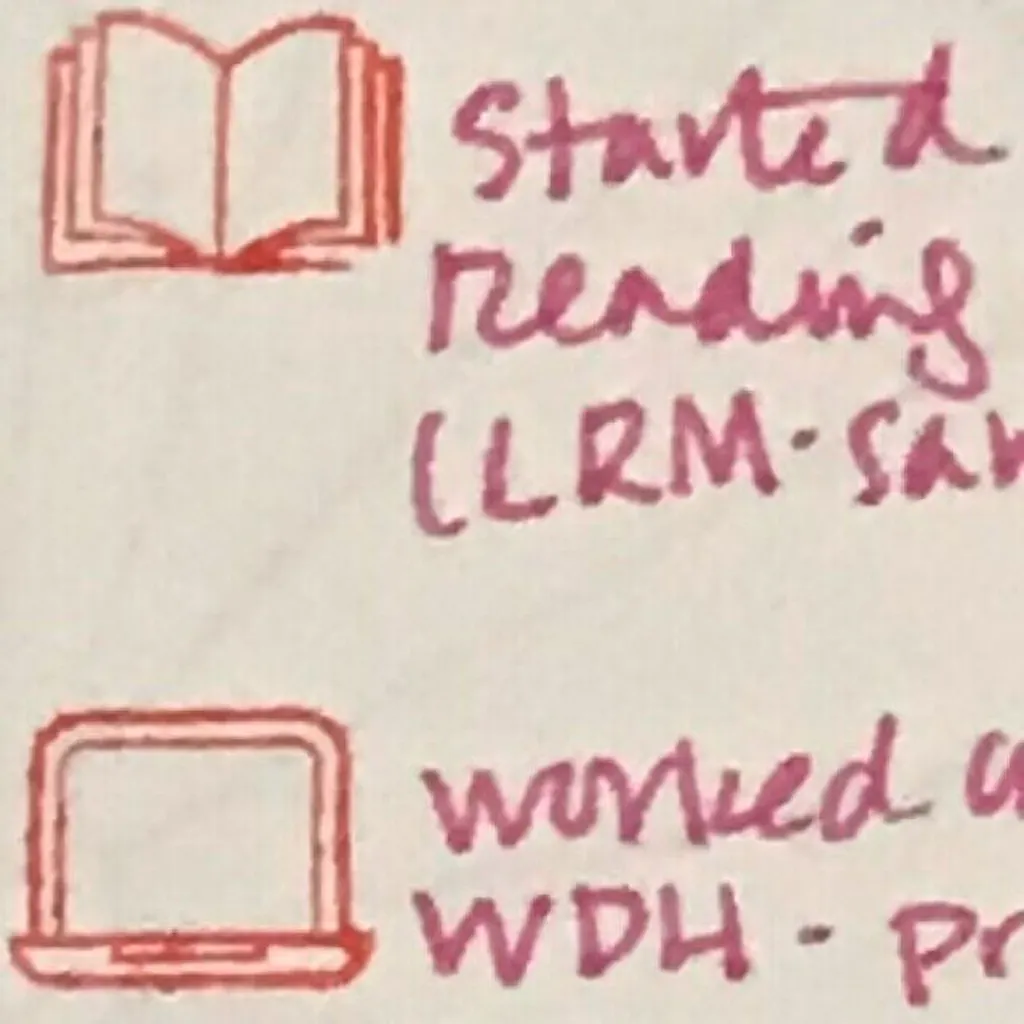 Started
reading
(LRM · San
worked
WDH · pr